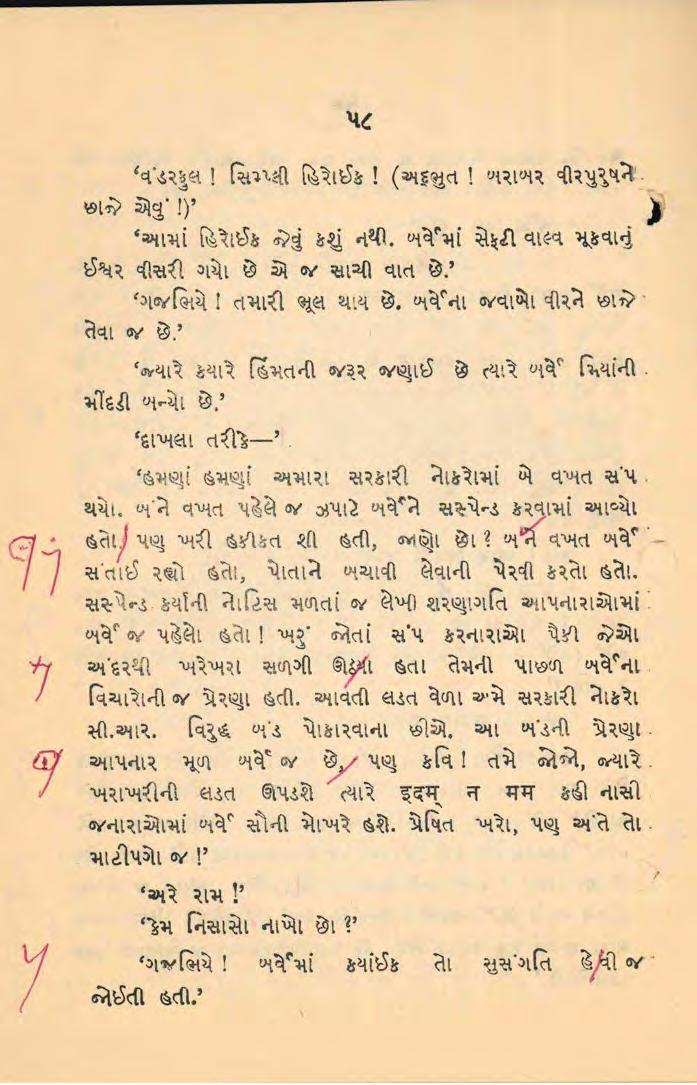 ૫૮
‘વંડરફુલ ! સિમ્પ્લી હિરોઈક ! (અદ્ભુત ! બરાબર વીરપુરુષને
છાજે એવું !)’
‘આમાં હિરોઈક જેવું કશું નથી. બર્વેમાં સેફ્ટી વાલ્વ મૂકવાનું
ઈશ્વર વીસરી ગયો છે એ જ સાચી વાત છે.’
‘ગજભિયે ! તમારી ભૂલ થાય છે. બર્વેના જવાબો વીરને છાજે
તેવા જ છે.’
‘જ્યારે કયારે હિંમતની જરૂર જણાઈ છે ત્યારે બર્વે મિયાંની
મીંદડી બન્યો છે.’
‘દાખલા તરીકે—’
‘હમણાં હમણાં અમારા સરકારી નોકરોમાં બે વખત સંપ
થયો. બંને વખત પહેલે જ ઝપાટે બર્વેને સસ્પેન્ડ કરવામાં આવ્યો
હતો, પણ ખરી હકીકત શી હતી, જાણો છો ? બંને વખત બર્વે
સંતાઈ રહ્યો હતો, પોતાને બચાવી લેવાની પેરવી કરતો હતો.
સસ્પેન્ડ કર્યાની નોટિસ મળતાં જ લેખી શરણાગતિ આપનારાઓમાં
બર્વે જ પહેલો હતો ! ખરું જોતાં સંપ કરનારાઓ પૈકી જેઓ
અંદરથી ખરેખરા સળગી ઊઠ્યા હતા તેમની પાછળ બર્વેના
વિચારોની જ પ્રેરણા હતી. આવતી લડત વેળા અમે સરકારી નોકરો
સી.આર. વિરુદ્ધ બંડ પોકારવાના છીએ. આ બંડની પ્રેરણા
આપનાર મૂળ બર્વે જ છે, પણ કવિ ! તમે જોજો, જ્યારે
ખરાખરીની લડત ઊપડશે ત્યારે इदम् न मम કહી નાસી
જનારાઓમાં બર્વે સૌની મોખરે હશે. પ્રેષિત ખરો, પણ અંતે તો
માટીપગો જ !’
‘અરે રામ !’
‘કેમ નિસાસો નાખો છો ?’
‘ગજભિયે ! બર્વેમાં કયાંઈક તો સુસંગતિ હેવી જ
જોઈતી હતી.’